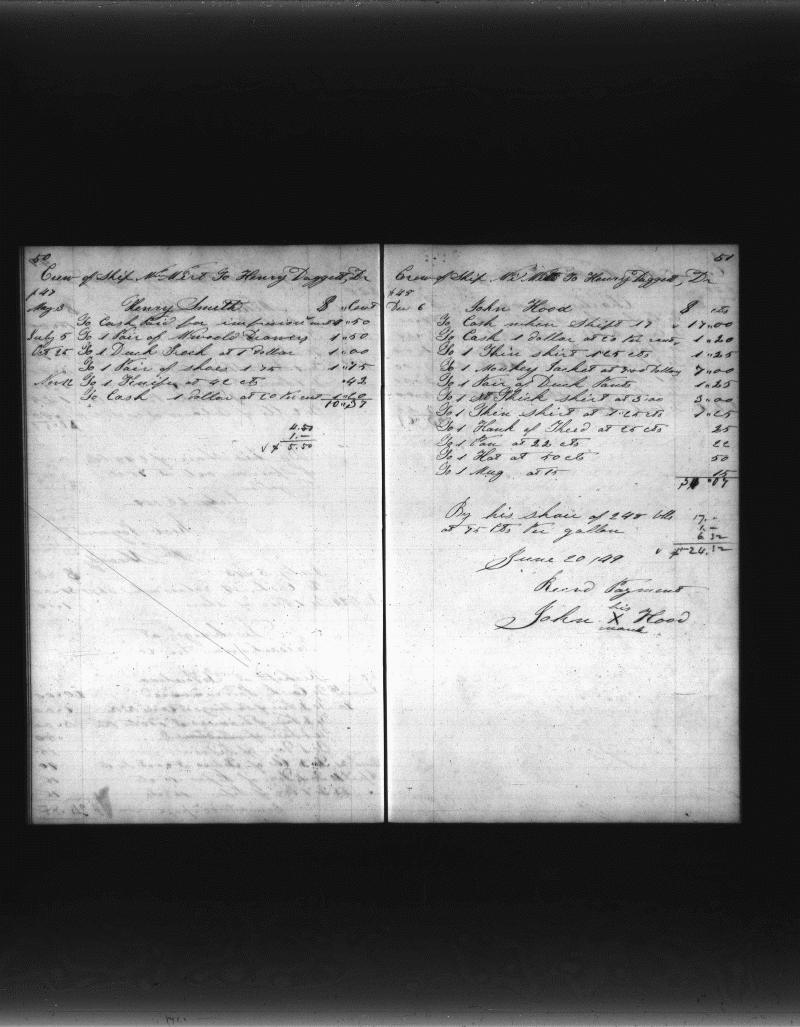 50
Crew of Ship Wm Wirt To Henry Daggett, Dr
/47
May 3 Henry Smith $ Cent
To Cash Paid for 50
July 5 To 1 Pair of Drawers 1 " 50
Oct 25 To 1 Duck Frock at 1 dollar 1 " 00
To 1 Pair of shoes 1.75 1 " 75
To 1 Knife at 42 cts " 42
To Cash 1 dollar at 20 Per cent 1 " 20
10 " 37
4.50
1.—
$ 5.50
51
Crew of Ship Wm. Wirt To Henry Daggett, Dr
/48
Dec 6 John Hood $ cts
To Cash when Shipt 17 17 " 00
To Cash 1 dollar at 20 Per cent 1 " 20
To 1 Thin shirt 1.25 cts 1 " 25
To 1 Monkey Jacket at 7.00 Dollars 7 " 00
To 1 Pair of Duck Pants 1 " 25
To 1 Thick shirt at 3.00 3 " 00
To 1 Thin shirt at 1.25 cts 1 " 25
To 1 Hank of Thred at 25 cts 25
To 1 Pan at 22 cts 22
To 1 Hat at 50 cts 50
To 1 Mug at 15 15
" 07
By his share of 248 bbls 17. "
at 75 Cts Per gallon 1. —
6 32
$ 24.32
June 20 /49
Recvd Payment
his
John X Hood
mark